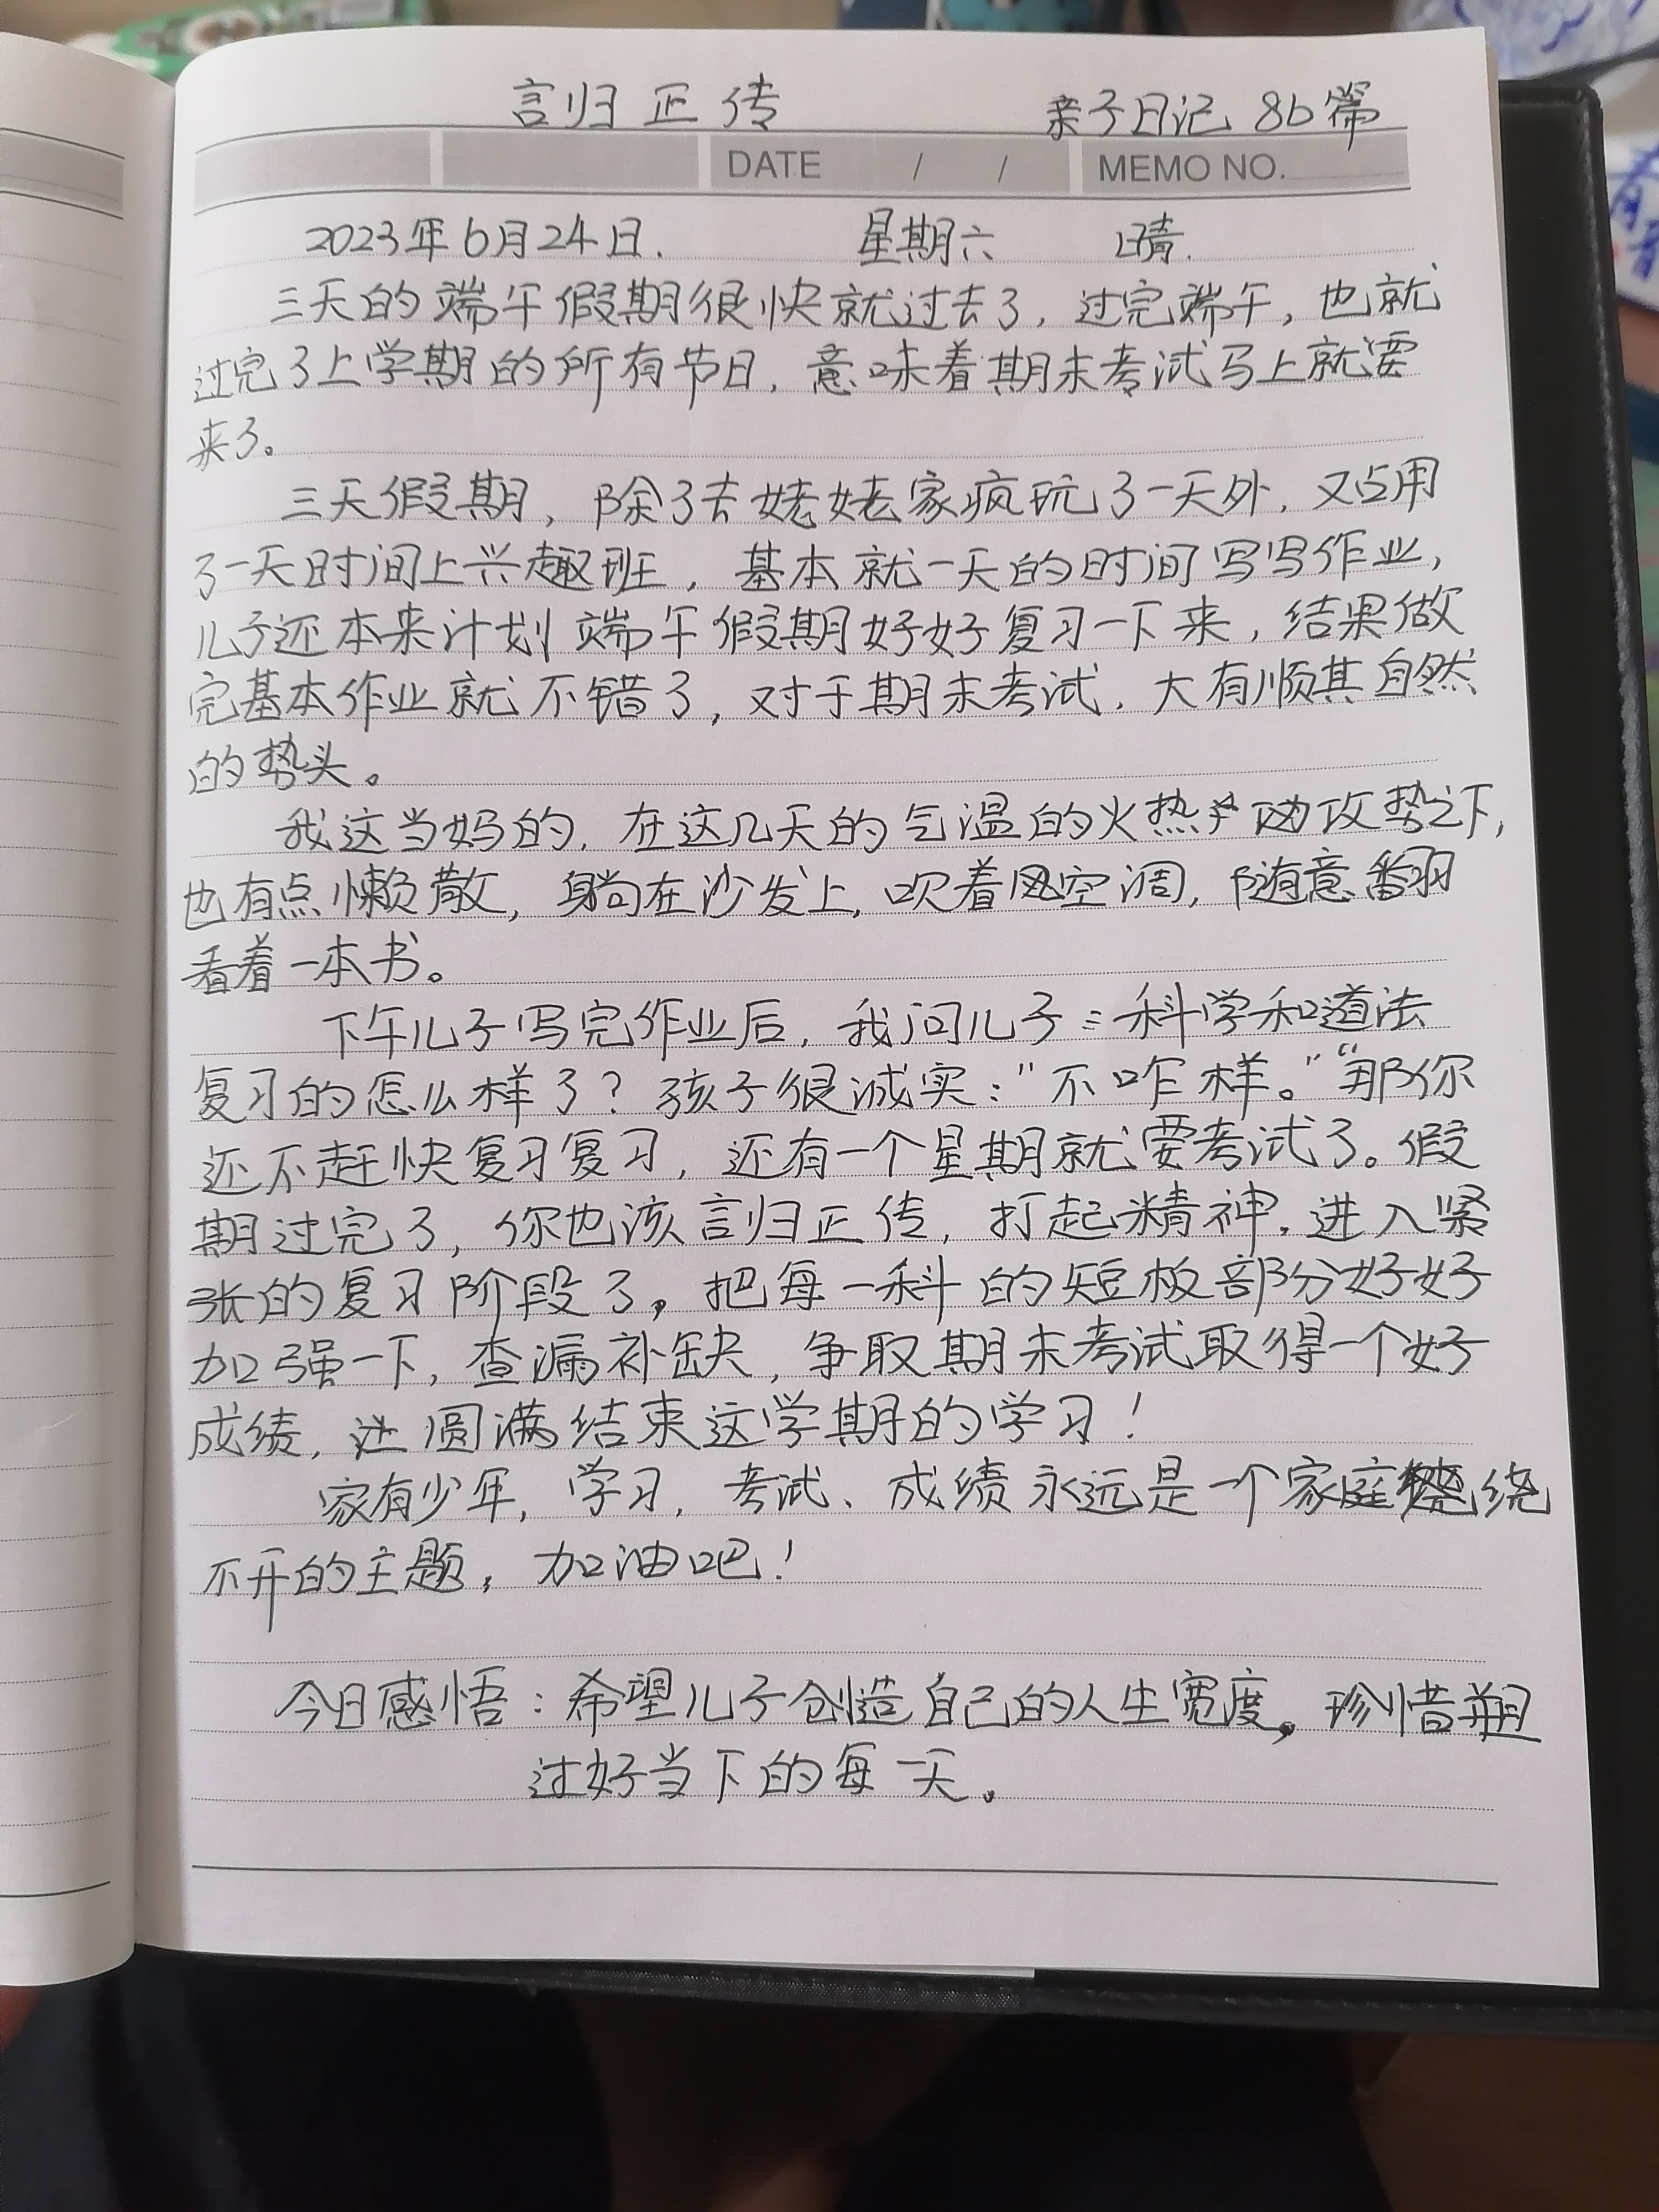 言归正传 亲子日记 86篇
DATE / / MEMO NO.
2023年6月24日. 星期六 晴.
三天的端午假期很快就过去了，过完端午，也就
过完了上学期的所有节日，意味着期末考试马上就要
来了。
三天假期，除了去姥姥家疯玩了一天外，又占用
了一天时间上兴趣班，基本就一天的时间写写作业，
儿子还本来计划端午假期好好复习一下来，结果做
完基本作业就不错了，对于期末考试，大有顺其自然
的势头。
我这当妈的，在这几天的气温的火热攻势之下，
也有点懒散，躺在沙发上，吹着空调，随意翻
看着一本书。
下午儿子写完作业后，我问儿子：科学和道法
复习的怎么样了？孩子很诚实：“不咋样。”“那你
还不赶快复习复习，还有一个星期就要考试了。假
期过完了，你也该言归正传，打起精神，进入紧
张的复习阶段了，把每一科的短板部分好好
加强一下，查漏补缺，争取期末考试取得一个好
成绩，让圆满结束这学期的学习！
家有少年，学习，考试、成绩永远是一个家庭绕
不开的主题，加油吧！
今日感悟：希望儿子创造自己的人生宽度，珍惜
过好当下的每一天。